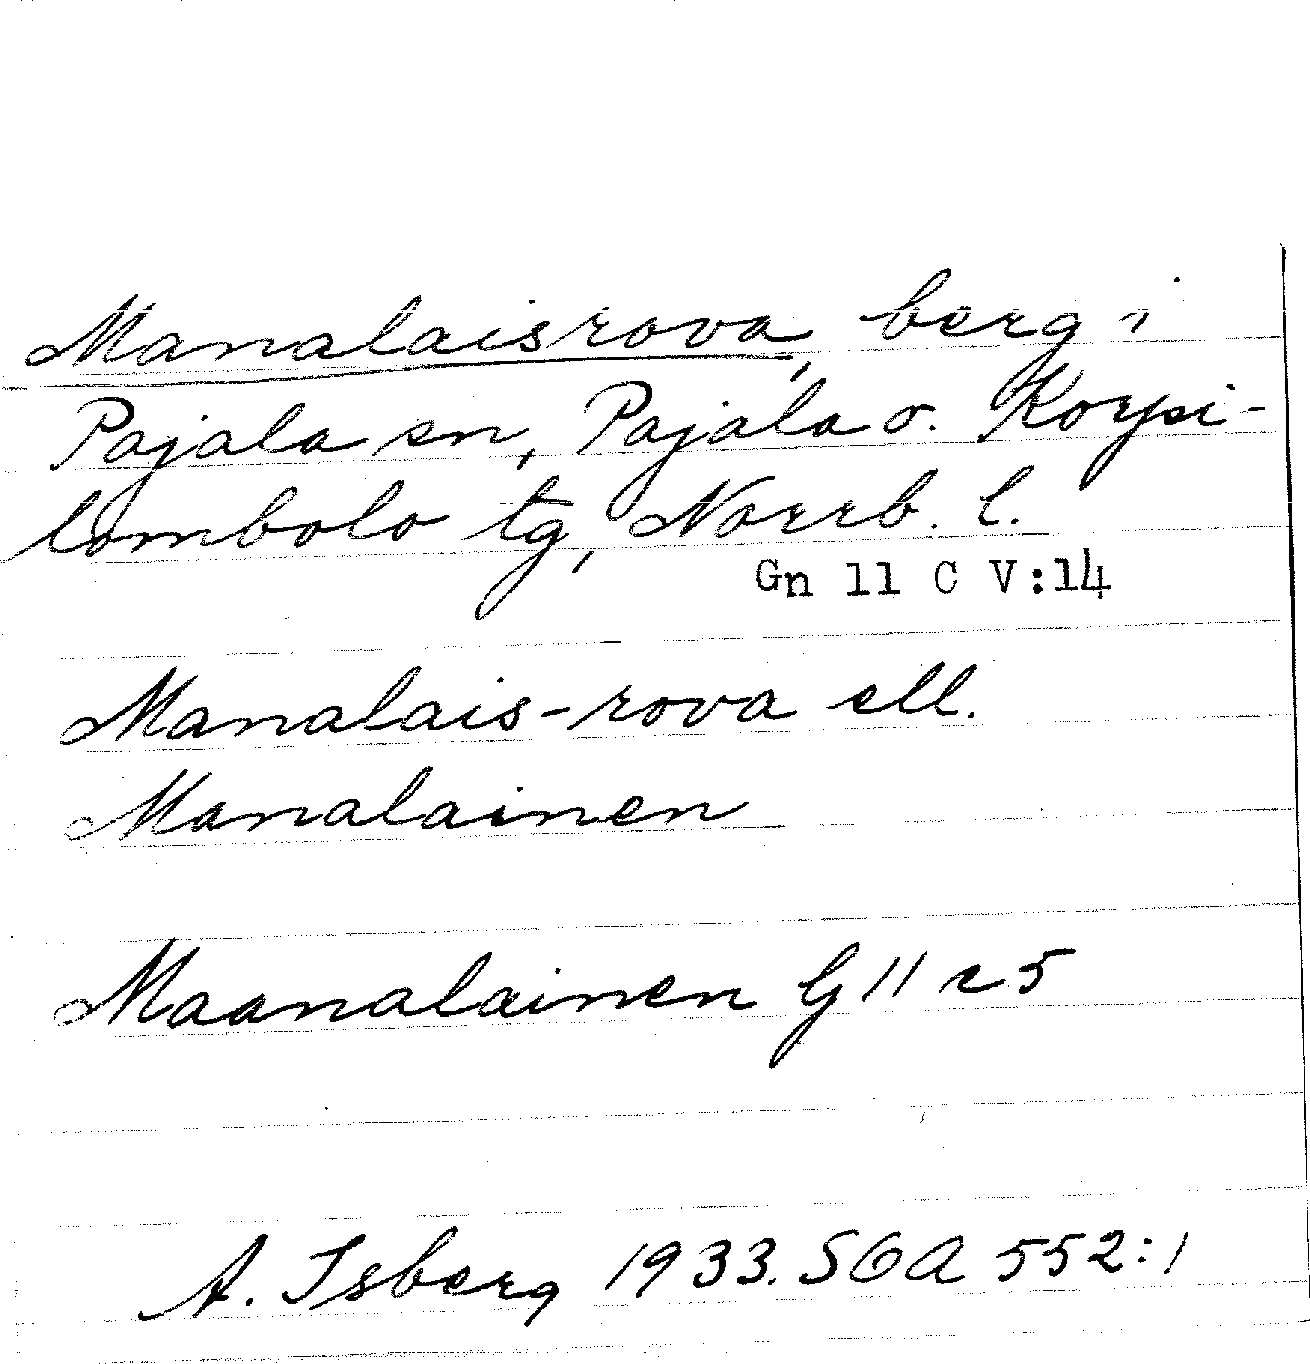 Manalaisrova, berg i
Pajala sn, Pajala o. Korpi-
lombolo tg, Norrb. l.
Gn 11 C V:14
Manalais-rova ell.
Manalainen
Maanalainen G 11 c 5
A. Isberg 1933. SOA 552:1